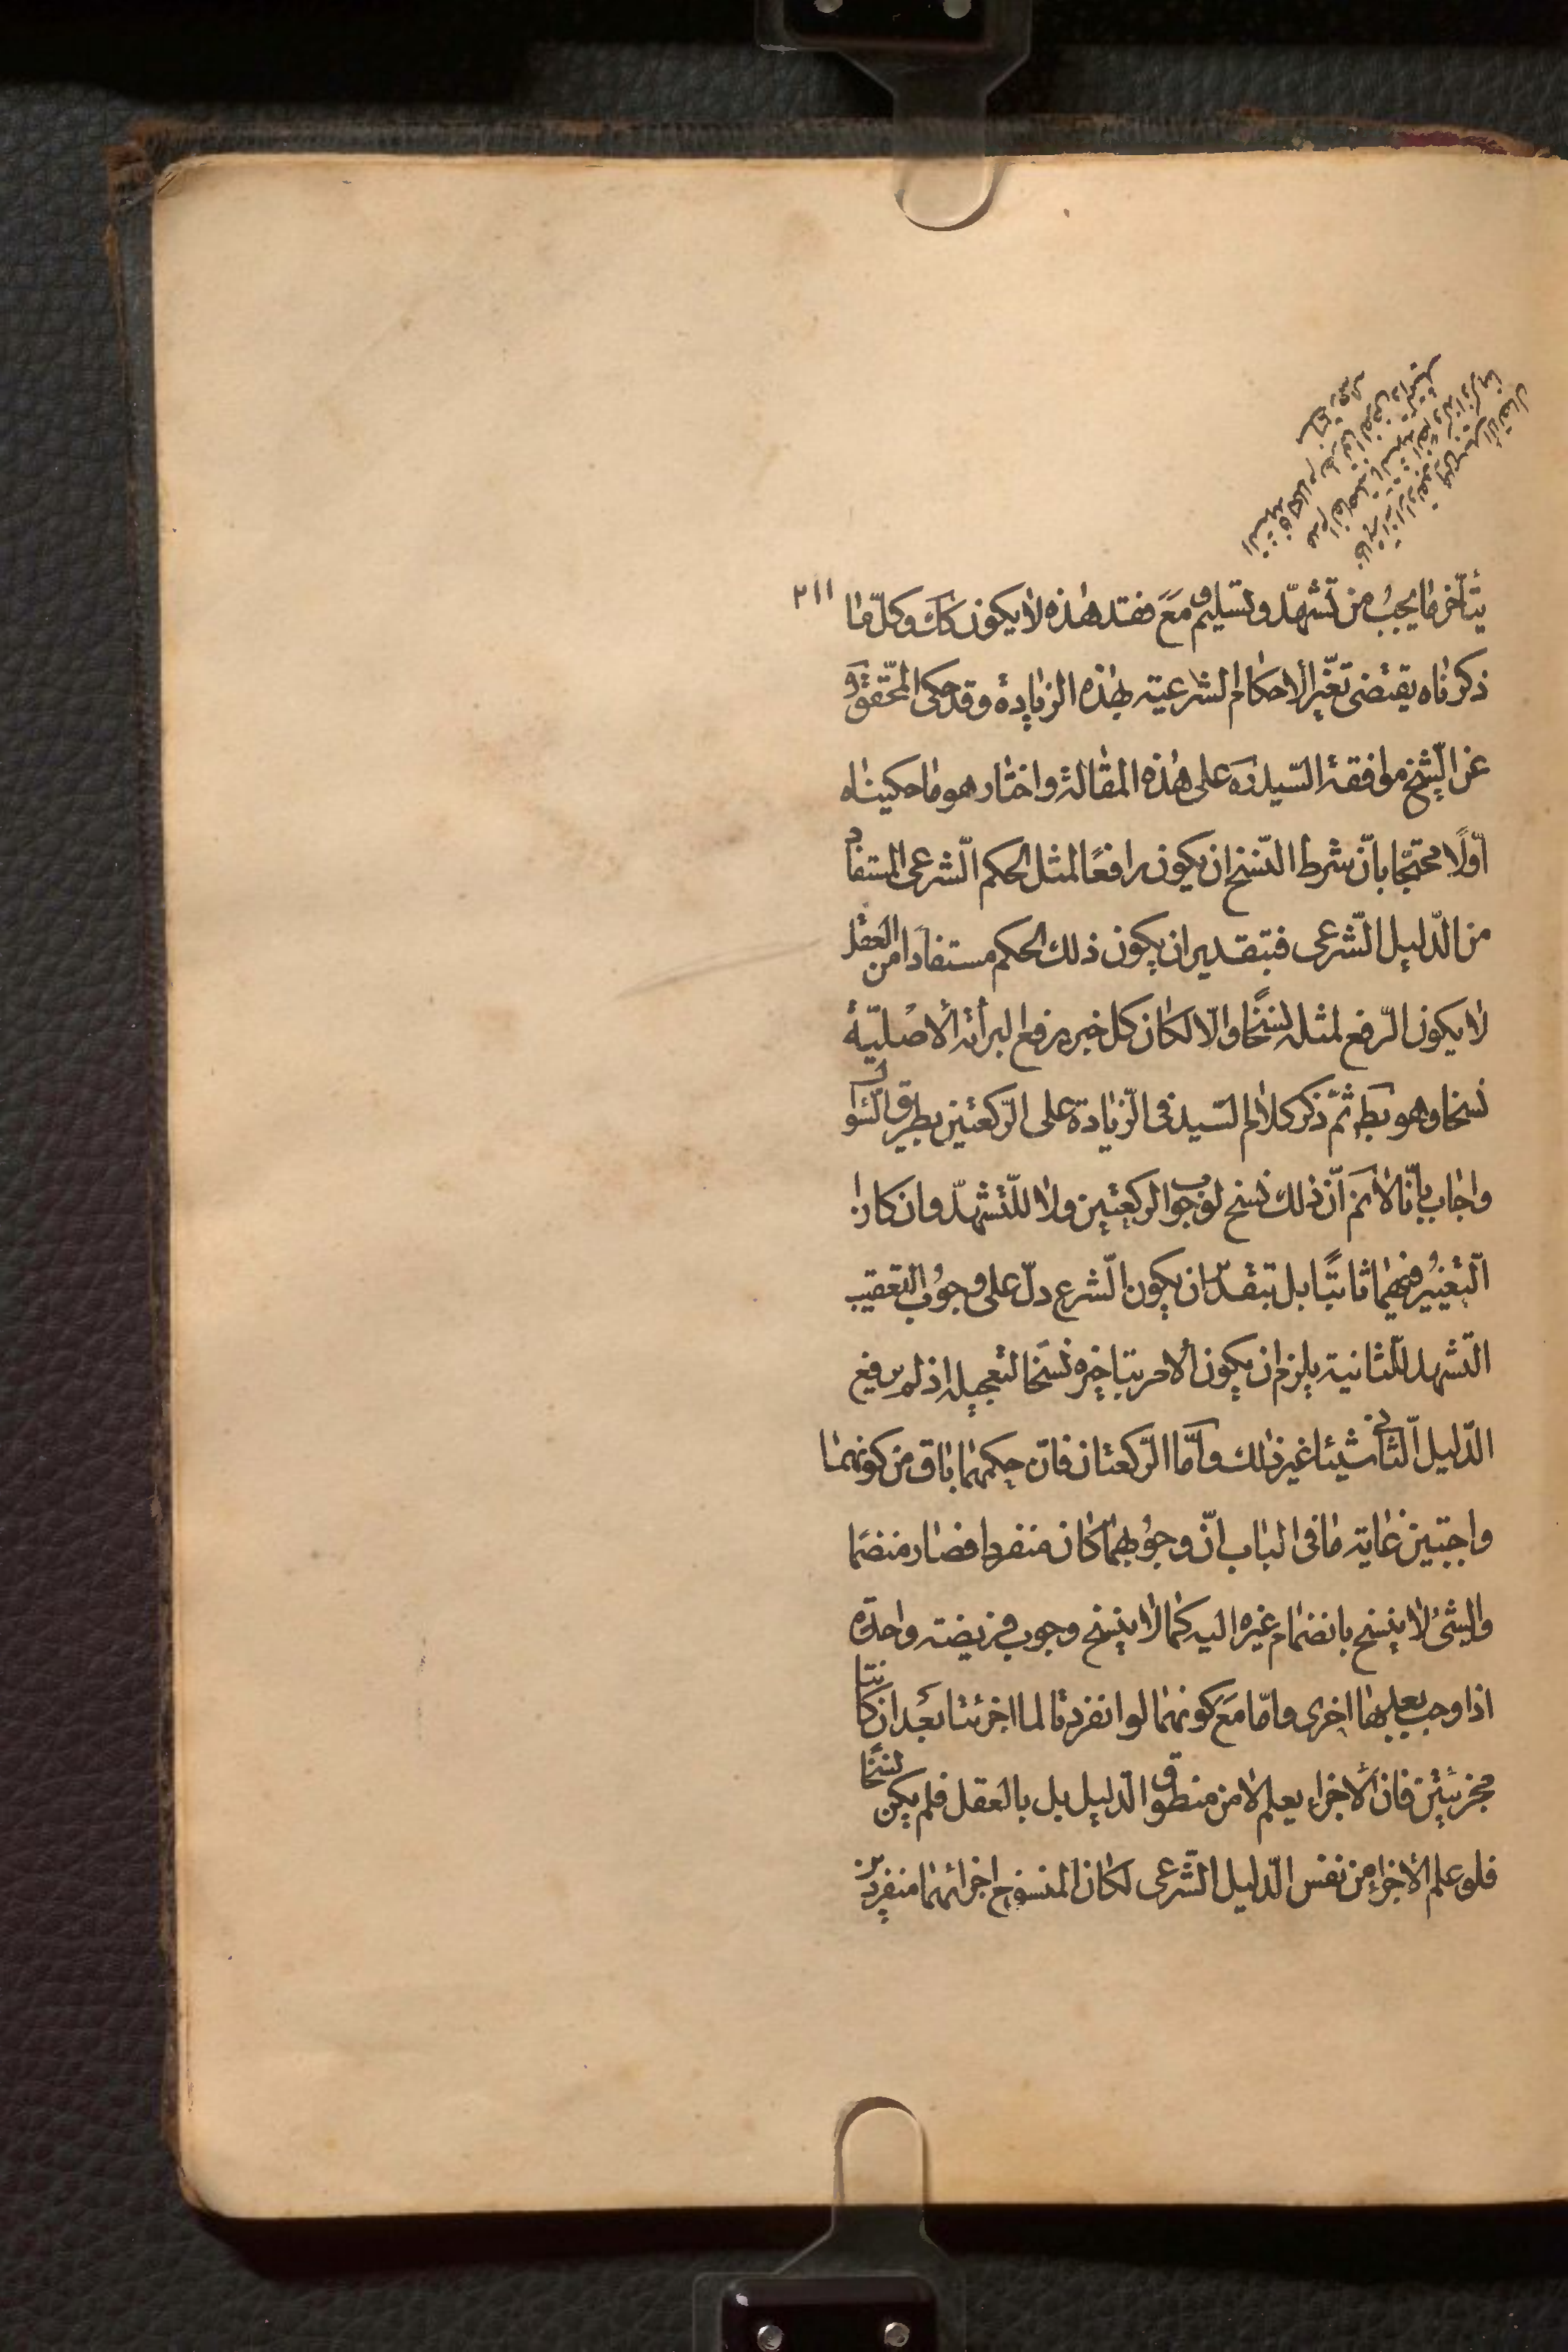 ٢١١
يتأخر ما يجب من تشهّد وتسليم ومع فقد هذه لا يكون كك وكلّ ما
ذكرناه يقتضى تغيّر الاحكام الشرعية بهذه الزيادة وقد حكى المحقّق ره
عن الشّيخ موافقة السّيد ره على هذه المقالة واختار هو ما حكيناه
اوّلًا محتجّا بانّ شرط النّسخ ان يكون رافعًا لمثل الحكم الشّرعى المستفاد
من الدّليل الشّرعى فبتقدير ان يكون ذلك الحكم مستفادا من العقل
لا يكون الرّفع لمثله نسخًا والّا لكان كل خبر يرفع البرأة الأصْليّة
نسخا وهو بط ثمّ ذكر كلام السّيد فى الزّيادة على الرّكعتين بطريق السّؤال
واجاب بأنّا لا نم انّ ذلك نسخ لوجوب الركعتين ولا للتّشهّد وان كان
التّغيير فيهما ثابتًا بل بتقدير ان يكون الشّرع دلّ على وجوب التعقيب
التّشهد للثّانية يلزم ان يكون الأمر بتاخيره نسخا لتعجيله اذ لم يرفع
الدّليل الثّانى شيئا غير ذلك وأمّا الرّكعتان فانّ حكمهما باق من كونهما
واجبتين غاية ما فى الباب انّ وجوبهما كان منفردا فصار منضما
والشئ لا ينسخ بانضمام غيره اليه كما لا ينسخ وجوب فريضة واحدة
اذا وجب بعدها اخرى وامّا مع كونهما لو انفردتا لما اجزئتا بعد ان كانتا
مجزئتين فان الأجزاء يعلم لا من منطوق الدّليل بل بالعقل فلم يكن نسخًا
فلو علم الأجزاء من نفس الدّليل الشّرعى لكان المنسوخ اجزائهما منفردين